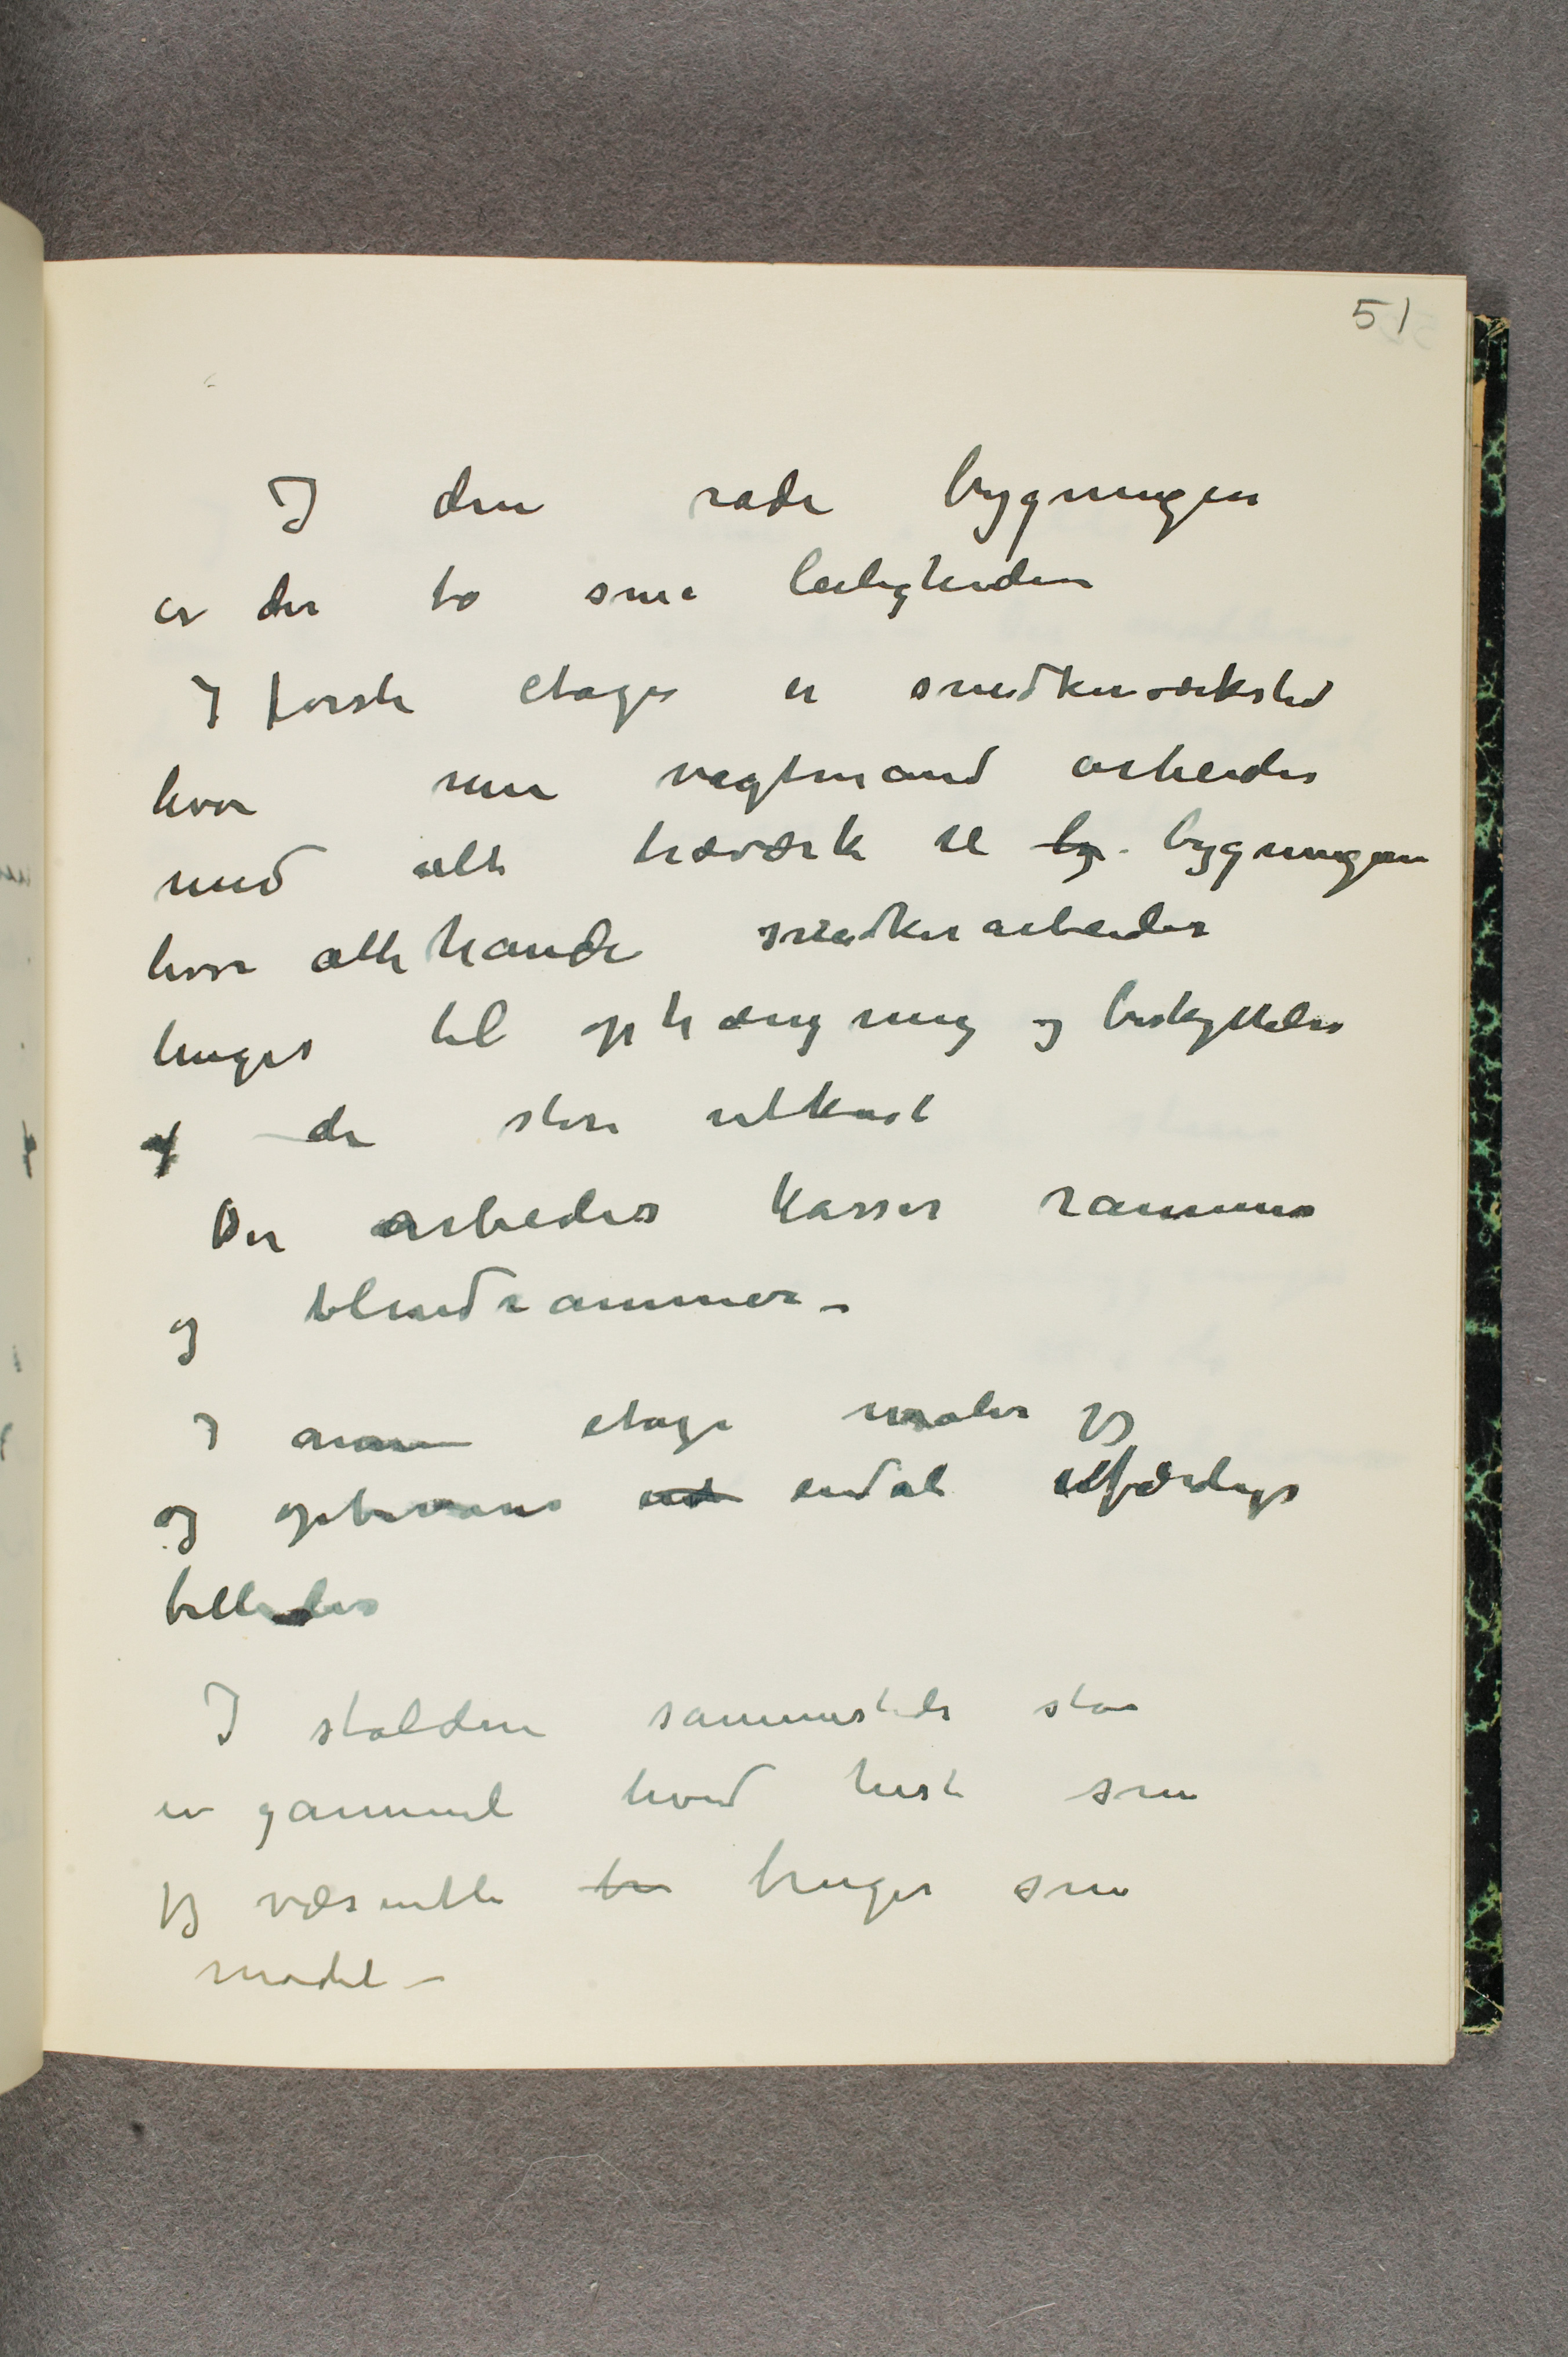 51
I den røde bygningen
er der to små leiligheder
I første etage er snedkerværksted
hvor min vagtmand arbeider
med alt træværk til by bygningene
hvor allehånde snedkerarbeider
bruges til ophængning og beskyttelse
af de store utkast
Der arbeides kasser rammer
og blindrammer –
I annen etage maler jeg
og opbevares endel uferdige
billeder
I stalden sammesteds står
en gammel hvid hest som
jeg væsentli br bruger som
model –